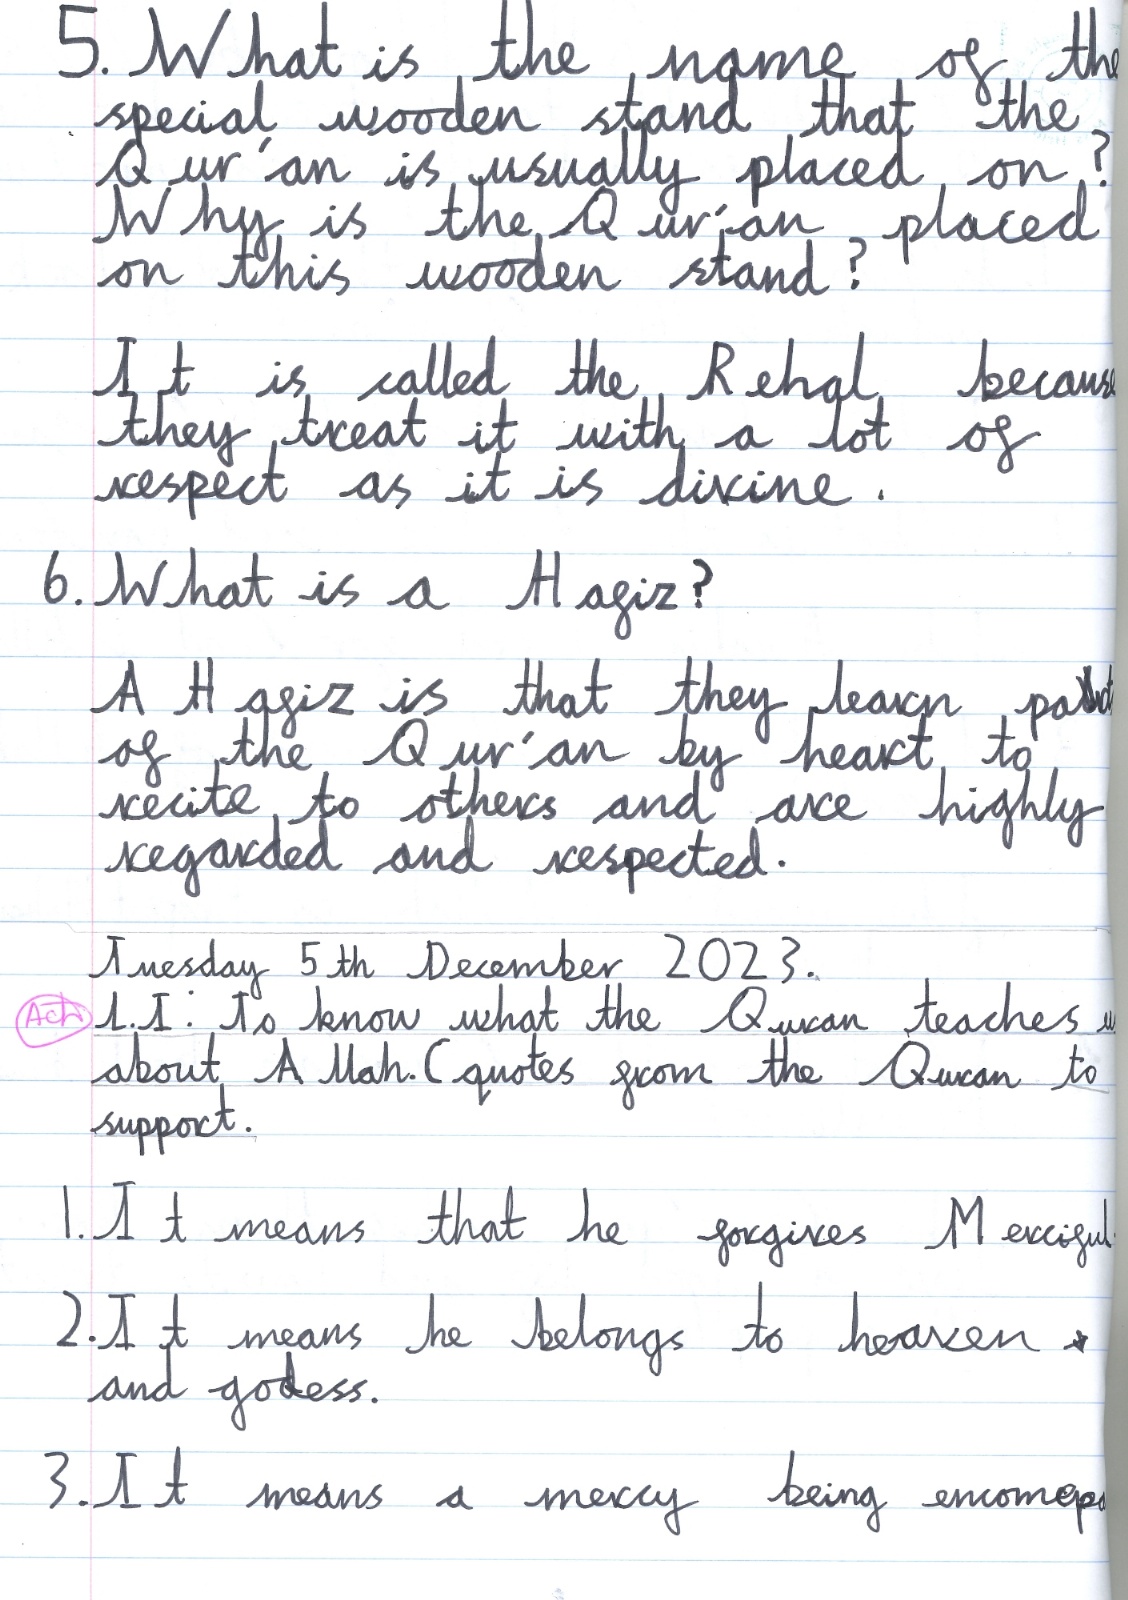 5. What is the name of the
special wooden stand that the
Qur'an is usually placed on?
Why is the Qur'an placed
on this wooden stand?
It is called the Rehal because
they treat it with a lot of
respect as it is divine.
6. What is a Hafiz?
A Hafiz is that they learn
of the Qur'an by heart to
recite to others and are highly
regarded and respected.
Tuesday 5th December 2023.
Act L.I: To know what the Quran teaches
about Allah. (quotes from the Quran to
support.
1. It means that he forgives Merciful
2. It means he belongs to heaven *
and godess.
3. It means a mercy being